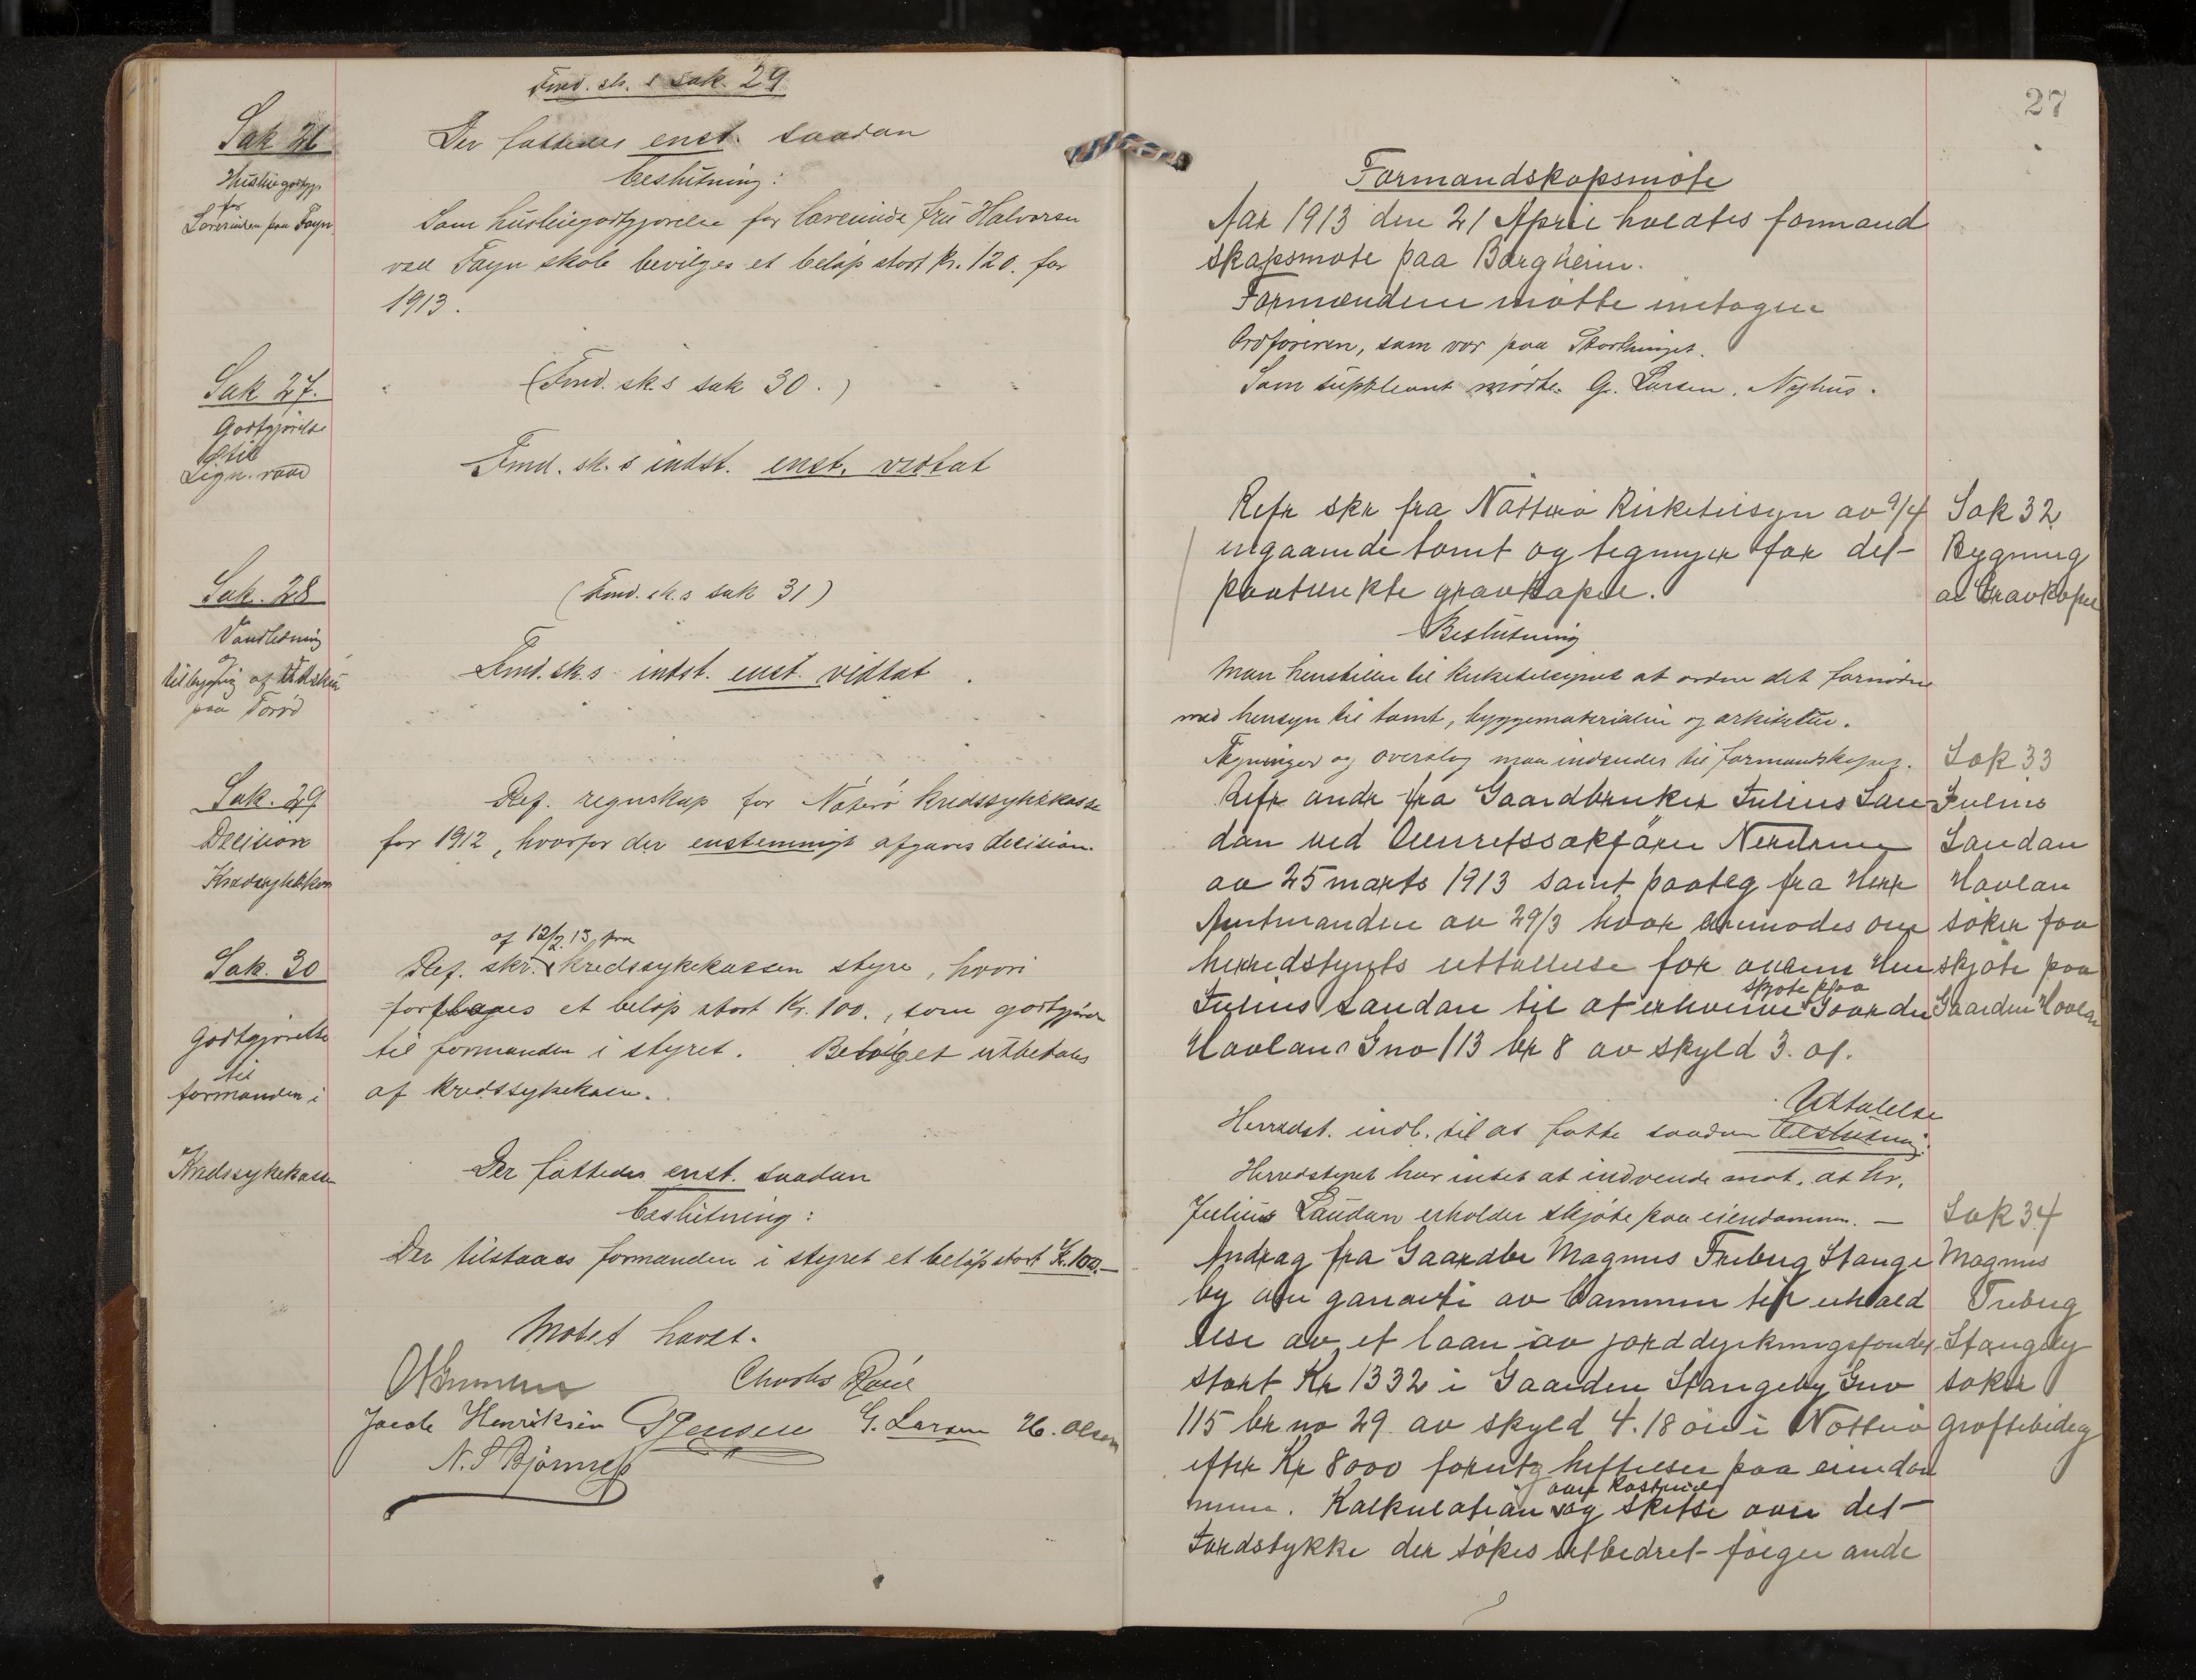 Fmd. sk. s sak. 29
Sak 26
Husleiegodtgj.
for
Lærerinden paa Føyn
Der fattedes enst. saadan
beslutning:
Som husleiegodtgjørelse for lærerinde fru Halvorsen
ved Føyn skole bevilges et beløp stort kr. 120. for
1913.
Sak 27.
Godtgjørelse
til
Lign. raad
(Fmd. sk.s sak 30.)
Fmd. sk. s indst. enst. vedtat
Sak. 28
Vandledning
og
tilbygning af
paa Torød
(Fmd. sk.s sak 31)
Fmd. sk.s indst. enst. vedtat.
Sak. 29
Decision
Kredssykekas
Ref. regnskap for Nøterø kredssykekasse
for 1912, hvorfor der enstemmigt afgaves decision.
Sak. 30
Godtgjørelse
til
formanden i
Kredssykekassen
af 12/2.13 fra
Ref. skr. kredssykekassen styre, hvori
forslages et beløp stort Kr. 100., som godtgjørelse
til formanden i styret. Beløpet utbetales
af kredssykekassen.
Der fattedes enst. saadan
beslutning:
Der tilstaaes formanden i styret et beløp stort Kr. 100.—
Møtet hævet.
Charles Røed
Jacob Henriksen G. Larsen H. Olsen
N. S Bjørnnes
27
Formandskapsmøte
Aar 1913 den 21 April holdtes formand
skapsmøte paa Borgheim.
Formændene møtte undtagen
Ordføreren, som var paa Storthinget.
Som suppleant mødte G. Larsen, Nyhus.
Refr skr fra Nøtterø Kirketilsyn av 9/4
angaaende tomt og tegninger for det
paatænkte gravkapel.
Sak 32
Bygning
av Gravkapel
Beslutning
Man henstiller til kirketilsynet at ordne det fornødne
med hensyn til tomt, byggematerialer og arkitektur.
Tegninger og overslag maa indsendes til formandskapet.
Sak 33
Julius
Landan
Havlan
søker faa
skjøte paa
Gaarden Havlan
Refr andr fra Gaardbruker Julius Lan
dan ved Overretssakfører Nerdrum
av 25 marts 1913 samt paateg fra Herr
Amtmanden av 29/3 hvor anmodes om
herredstyrets uttallelse for ovenn Herr
skjøte paa
Julius Landan til at erhverve Gaarden
Havlan Gno 113 br 8 av skyld 3. 01.
Uttalelse
Herredst. indb. til at fatte saadan beslutning.
Herredstyret har intet at indvende mot, at hr.
Julius Landan erholder skjøte paa eiendommen. —
Sak 34
Magnus
Treborg
Stangeby
søker
grøftebidrag
Andrag fra Gaardbr Magnus Treborg Stange
by om garanti av kommunen til erhold
else av et laan av jorddyrkningsfondet
stort Kr 1332 i Gaarden Stangeby Gno
115 br no 29. av skyld 4.18 øre i Nøtterø
efter Kr 8000 forutg heftelser paa eiendom
over kostende
men. Kalkulation og skitse over det
Jordstykke der søkes utbedret følger ande